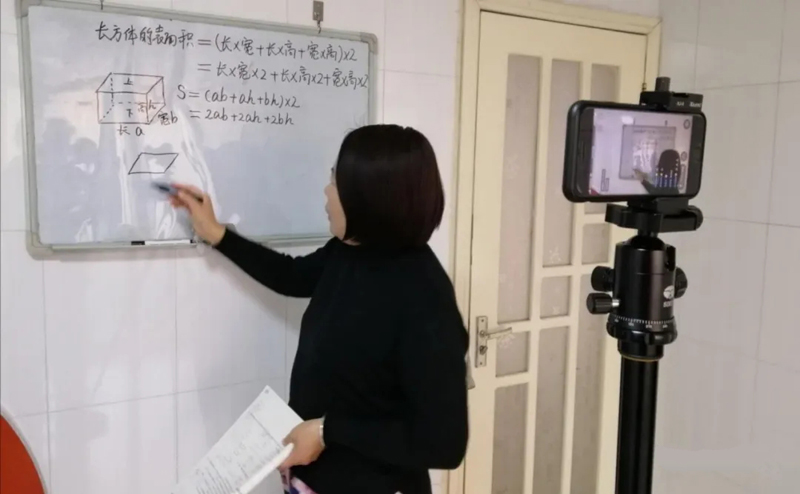 长方体的表面积=(长×宽+长×高+宽×高)×2
=长×宽×2+长×高×2+宽×高×2
S=(ab+ah+bh)×2
=2ab+2ah+2bh
上
下
h
宽b
长 a